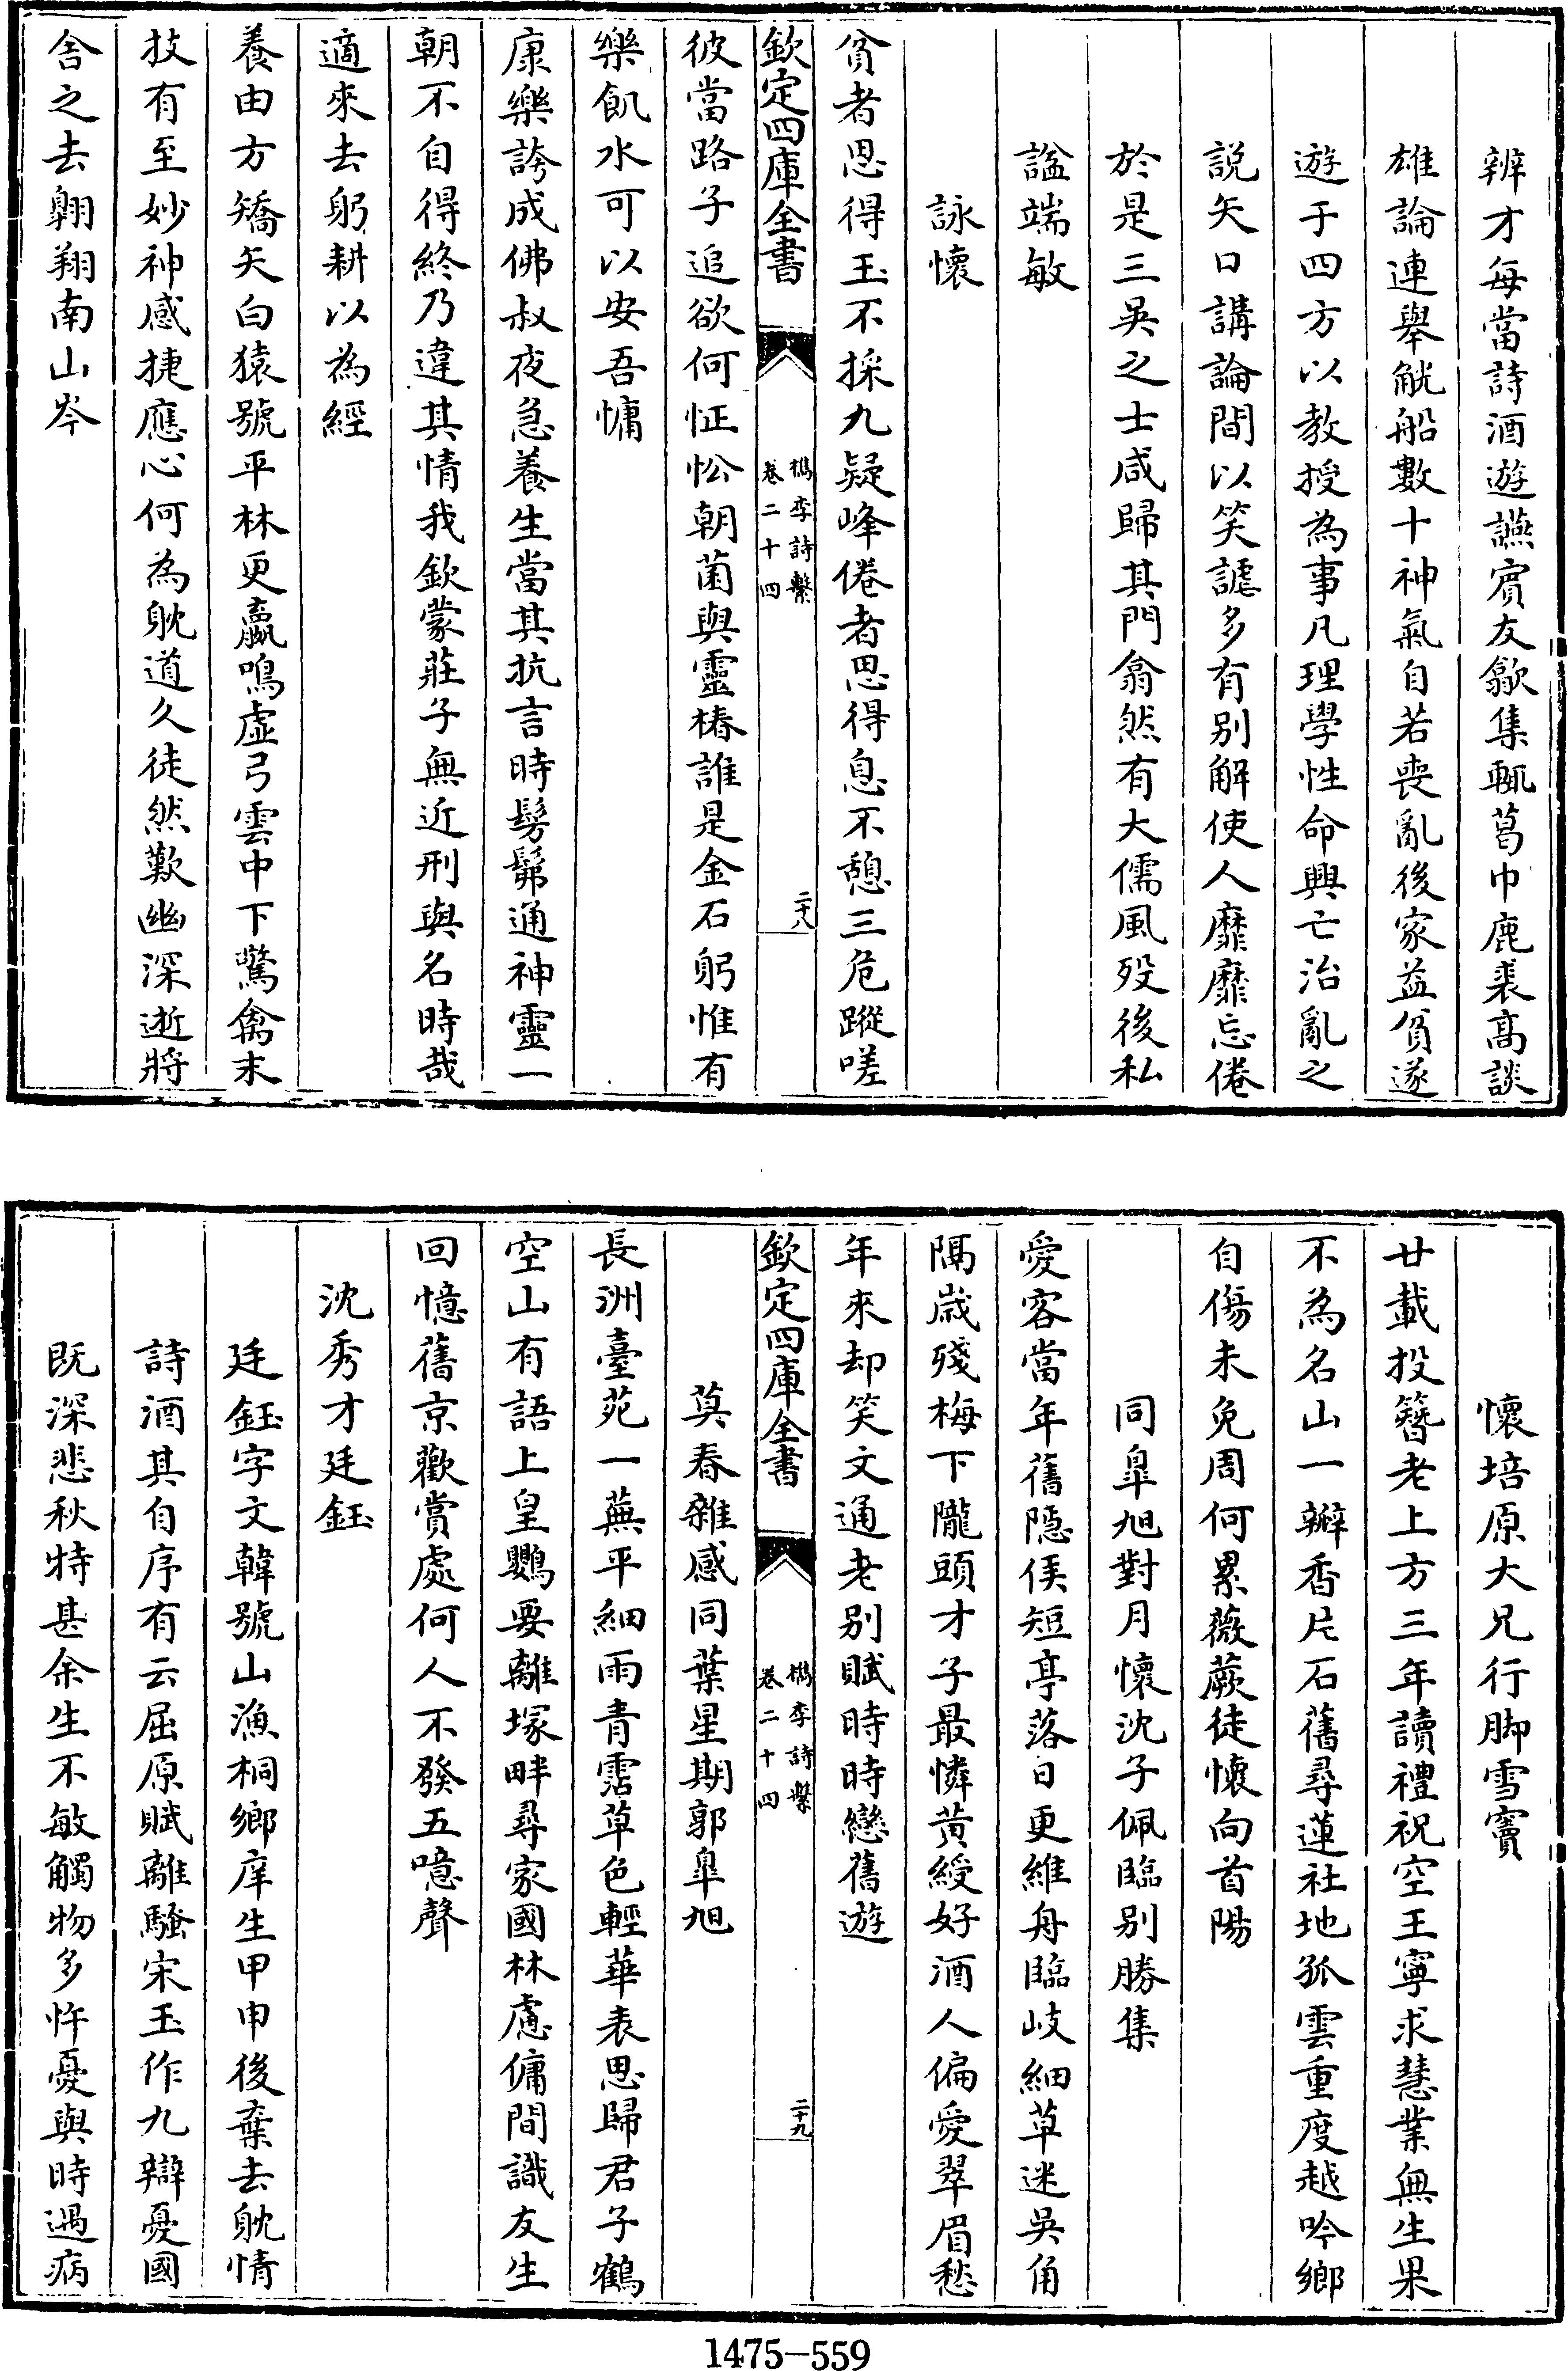 辨才每當詩酒遊讌賓友歙集輒葛巾鹿裘髙談
雄論連舉觥船數十神氣自若喪亂後家益貧遂
遊于四方以教授為事凡理學性命興亡治亂之
説矢口講論間以笑謔多有别解使人靡靡忘倦
於是三吳之士咸歸其門翕然有大儒風歿後私
諡端敏
詠懷
貧者思得玉不採九疑峰倦者思得息不憩三危蹤嗟
欽定四庫全書
檇李詩繫
卷二十四
二十八
彼當路子追欲何怔忪朝菌與靈椿誰是金石躬惟有
樂飢水可以安吾慵
康樂誇成佛叔夜急養生當其抗言時髣髴通神靈一
朝不自得終乃違其情我欽蒙莊子無近刑與名時哉
適來去躬耕以為經
養由方矯矢白猿號平林更羸鳴虛弓雲中下驚禽末
技有至妙神感捷應心何為躭道久徒然歎幽深逝將
舍之去翺翔南山岑
懷培原大兄行脚雪竇
廿載投簪老上方三年讀禮祝空王寧求慧業無生果
不為名山一瓣香片石舊尋蓮社地孤雲重度越吟鄉
自傷未免周何累薇蕨徒懷向首陽
同臯旭對月懷沈子佩臨别勝集
愛客當年舊隱侯短亭落日更維舟臨岐細草迷吳角
隔歲殘梅下隴頭才子最憐黄綬好酒人偏愛翠眉愁
年來却笑文通老别賦時時戀舊遊
欽定四庫全書
檇李詩繫
卷二十四
二十九
莫春雜感同葉星期郭臯旭
長洲臺苑一蕪平細雨青霑草色輕華表思歸君子鶴
空山有語上皇鸚要離塚畔尋家國林慮傭間識友生
回憶舊京歡賞處何人不發五噫聲
沈秀才廷鈺
廷鈺字文韓號山漁桐鄉庠生甲申後棄去躭情
詩酒其自序有云屈原賦離騷宋玉作九辯憂國
既深悲秋特甚余生不敏觸物多忤憂與時遇病
1475-559